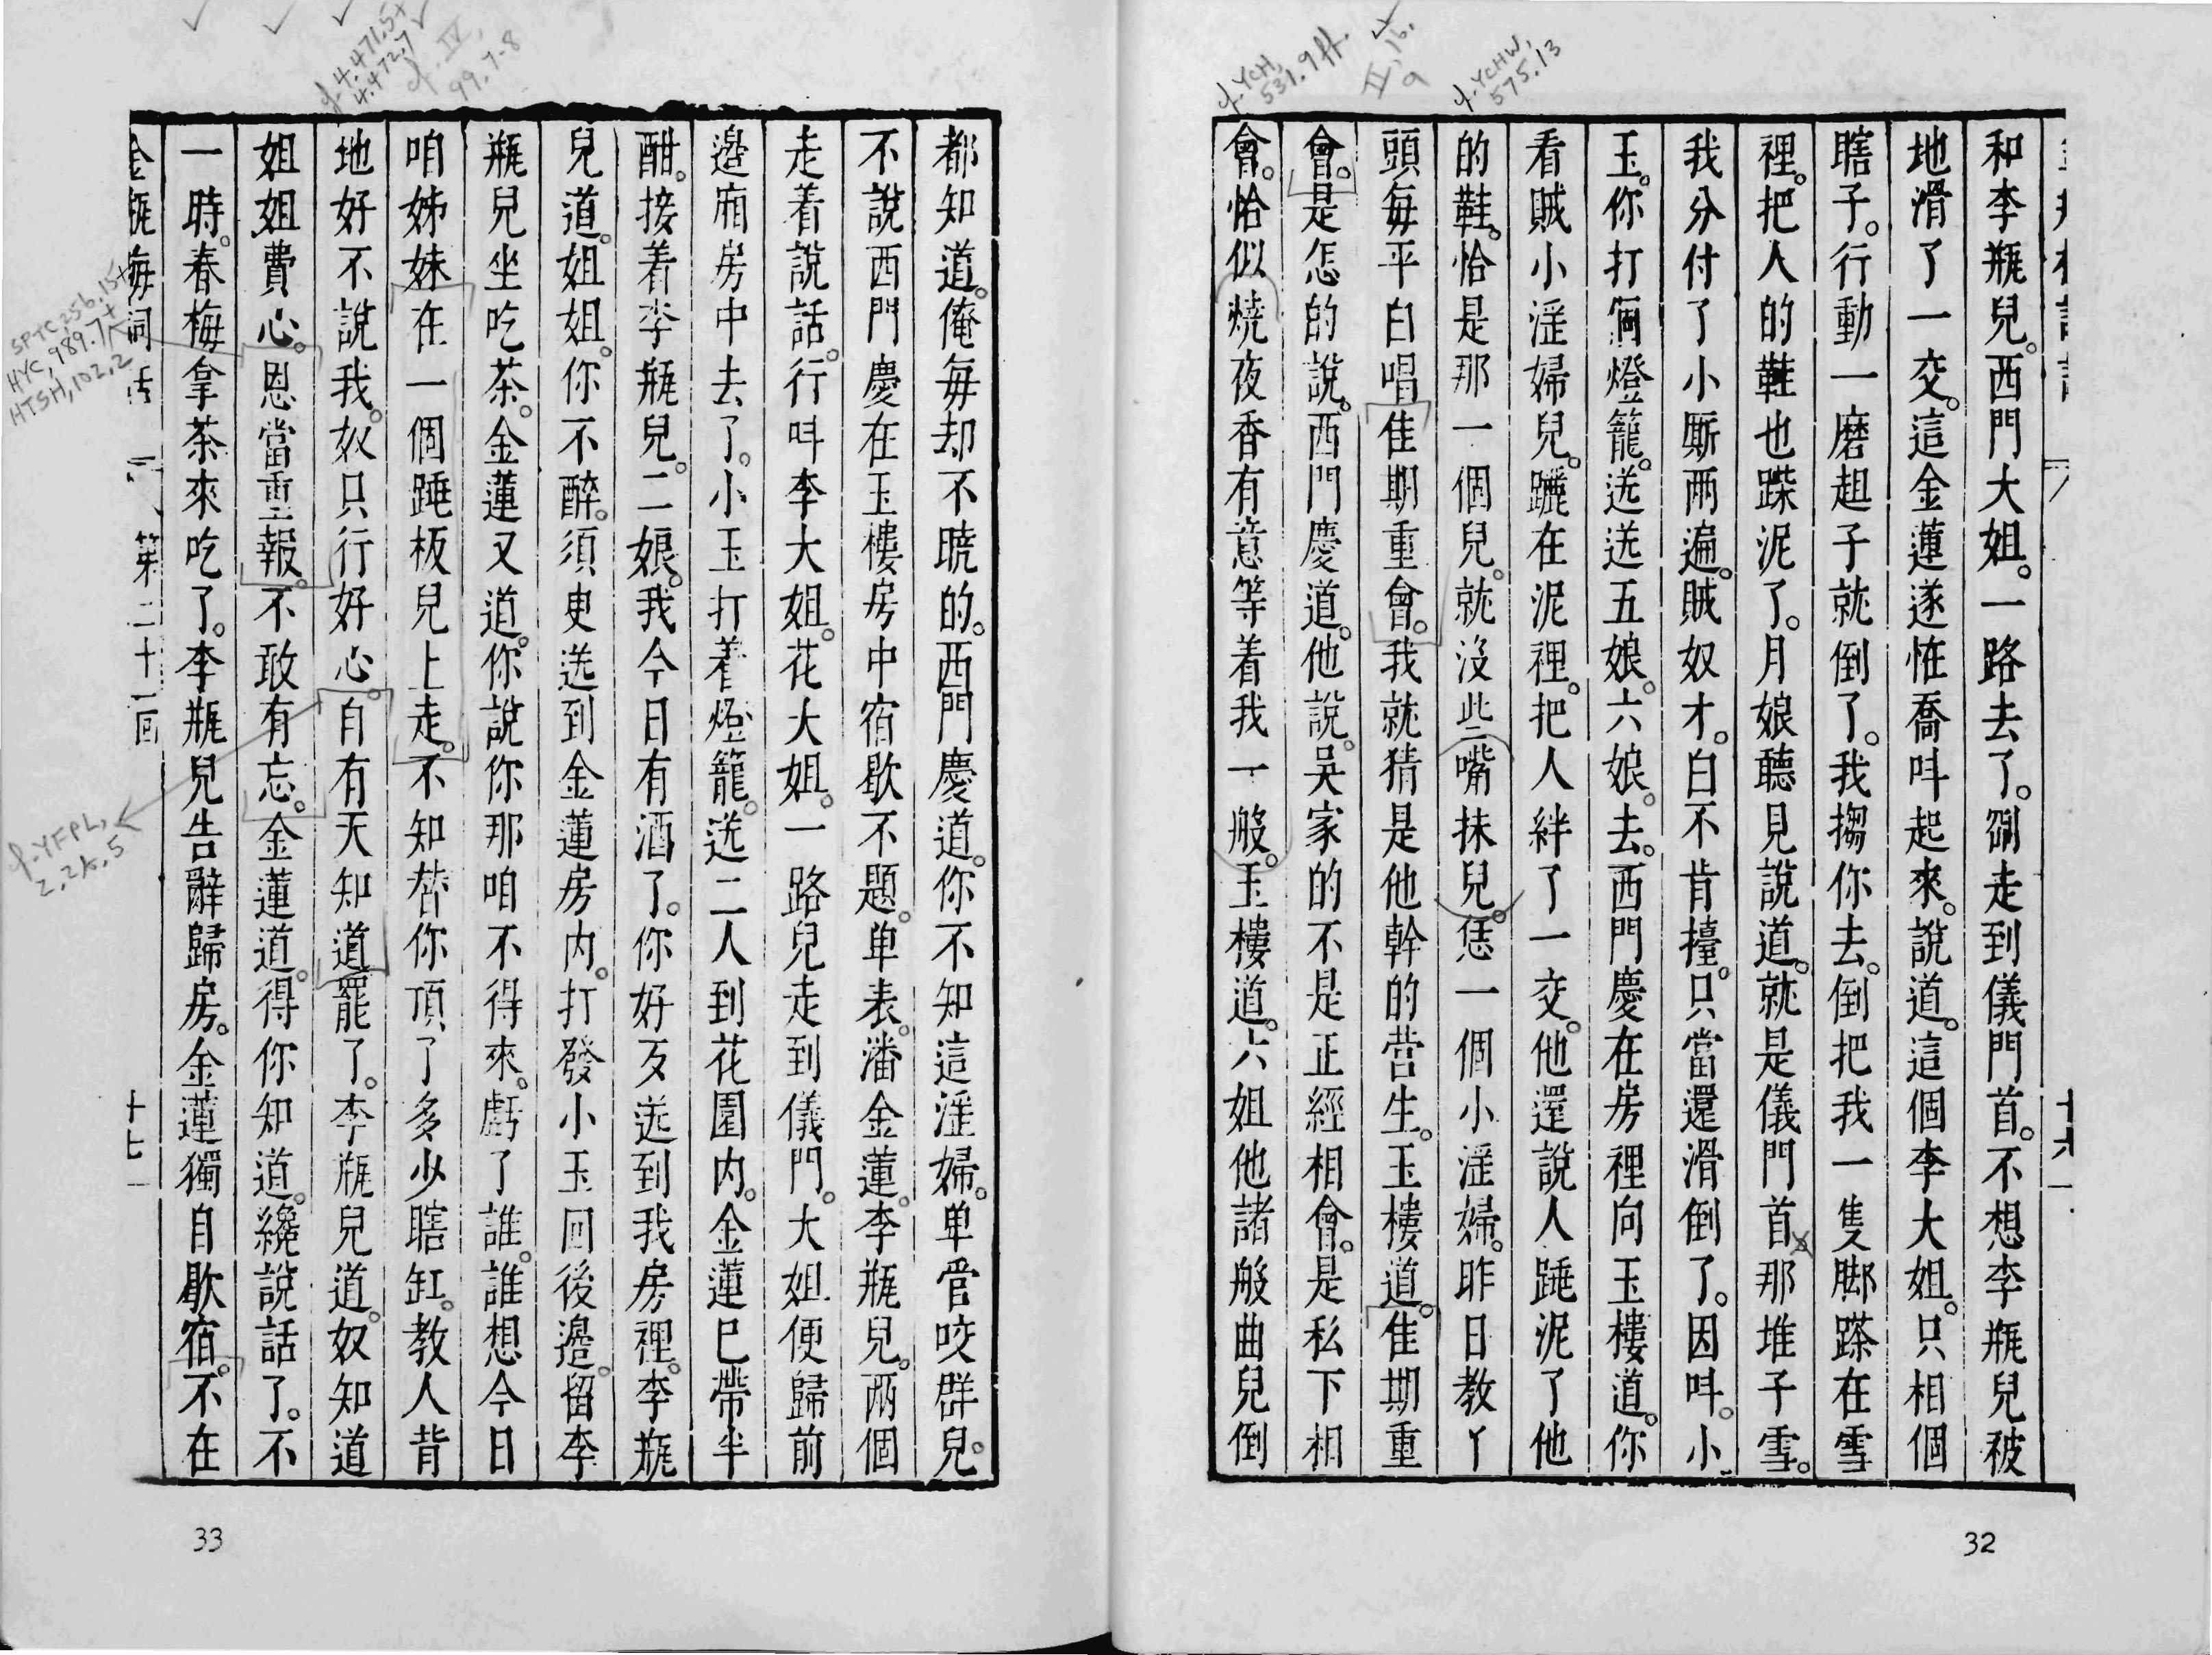 和李瓶兒。西門大姐。一路去了。剛走到儀門首。不想李瓶兒被
地滑了一交。這金蓮遂恠喬呌起來。說道。這個李大姐。只相個
瞎子。行動一磨趄子就倒了。我搊你去。倒把我一隻脚蹀在雪
裡。把人的鞋也蹀泥了。月娘聽見說道。就是儀門首那堆子雪。
我分付了小厮兩遍。賊奴才。白不肯擡。只當還滑倒了。因呌。小
玉。你打個燈籠。送送五娘。六娘。去。西門慶在房裡向玉樓道。你
看賊小淫婦兒。躧在泥裡。把人絆了一交。他還說人跐泥了他
的鞋。恰是那一個兒。就沒些嘴抹兒。恁一個小淫婦。昨日教丫
頭每平白唱佳期重會。我就猜是他幹的營生。玉樓道。佳期重
會。是怎的說。西門慶道。他說。吳家的不是正經相會。是私下相
會。恰似燒夜香有意等着我一般。玉樓道。六姐他諸般曲兒倒
十六
32
都知道。俺每却不曉的。西門慶道。你不知這淫婦。单管咬群兒。
不說西門慶在玉樓房中宿歇不題。单表。潘金蓮。李瓶兒。兩個
走着說話。行呌李大姐。花大姐。一路兒走到儀門。大姐便歸前
邊廂房中去了。小玉打着燈籠。送二人到花園内。金蓮已帶半
酣。接着李瓶兒。二娘。我今日有酒了。你好歹送到我房裡。李瓶
兒道。姐姐。你不醉。須臾送到金蓮房内。打發小玉回後邊。留李
瓶兒坐吃茶。金蓮又道。你說你那咱不得來。虧了誰。誰想今日
咱姊妹在一個跐板兒上走。不知替你頂了多少瞎缸。教人背
地好不說我。奴只行好心。自有天知道罷了。李瓶兒道。奴知道
姐姐費心。恩當重報。不敢有忘。金蓮道。得你知道。纔說話了。不
一時。春梅拿茶來吃了。李瓶兒告辭歸房。金蓮獨自歇宿。不在
金瓶梅詞話 第二十一回 十七
33
cf. YCH, 531.9ff.
II, 16, 9
cf. YCHW, 575.13
cf. 4.471.5+
4.472.7
cf. IV, 99.7-8
SPTC, 256.15+
HYC, 989.7+
HTSH, 102.2
cf. YFPL, 2.2b.5